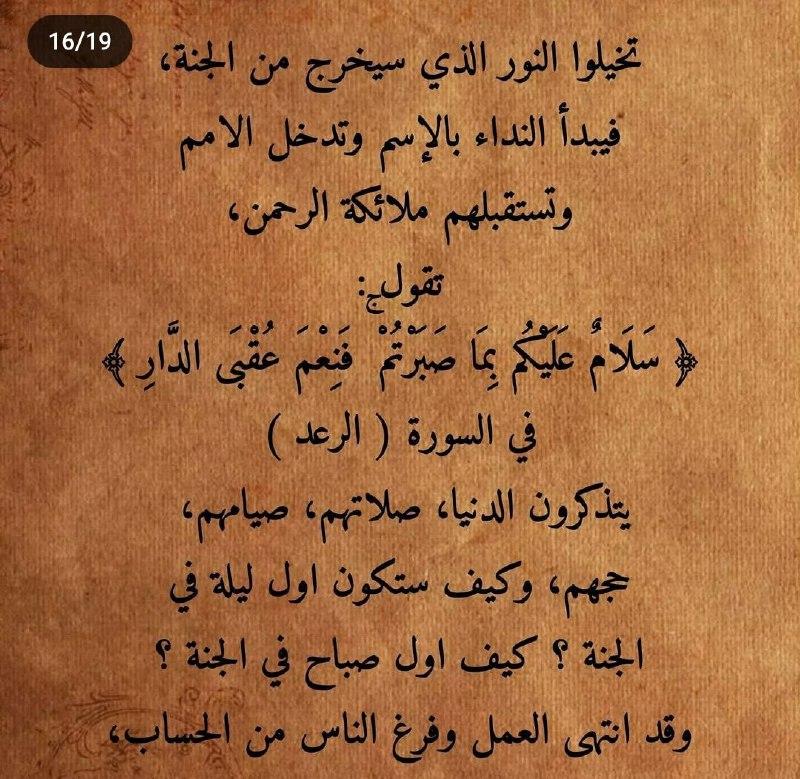 16/19
تخيلوا النور الذي سيخرج من الجنة،
فيبدأ النداء بالإسم وتدخل الامم
وتستقبلهم ملائكة الرحمن،
تقول:
﴿ سَلَامٌ عَلَيْكُم بِمَا صَبَرْتُمْ ۚ فَنِعْمَ عُقْبَى الدَّارِ ﴾
في السورة ( الرعد )
يتذكرون الدنيا، صلاتهم، صيامهم،
حجهم، وكيف ستكون اول ليلة في
الجنة ؟ كيف اول صباح في الجنة ؟
وقد انتهى العمل وفرغ الناس من الحساب،